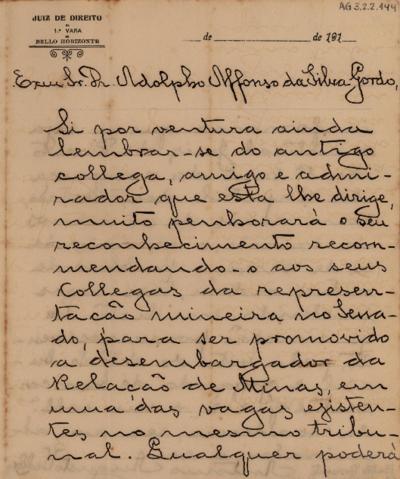 AG3.2.2.144
JUIZ DE DIREITO
DA
1.ª VARA
DE
BELLO HORIZONTE
de de 191
Exmo Sr. Dr. Adolpho Affonso da Silva Gordo,
Si por ventura ainda
lembrar-se do antigo
collega, amigo e admi-
rador que esta lhe dirige,
muito penhorará o seu
reconhecimento recom-
mendando-o aos seus
collegas da represen-
tação mineira no Sena-
do, para ser promovido
a desembargador da
Relação de Minas, em
uma das vagas existen-
tes no mesmo tribu-
nal. Qualquer poderá